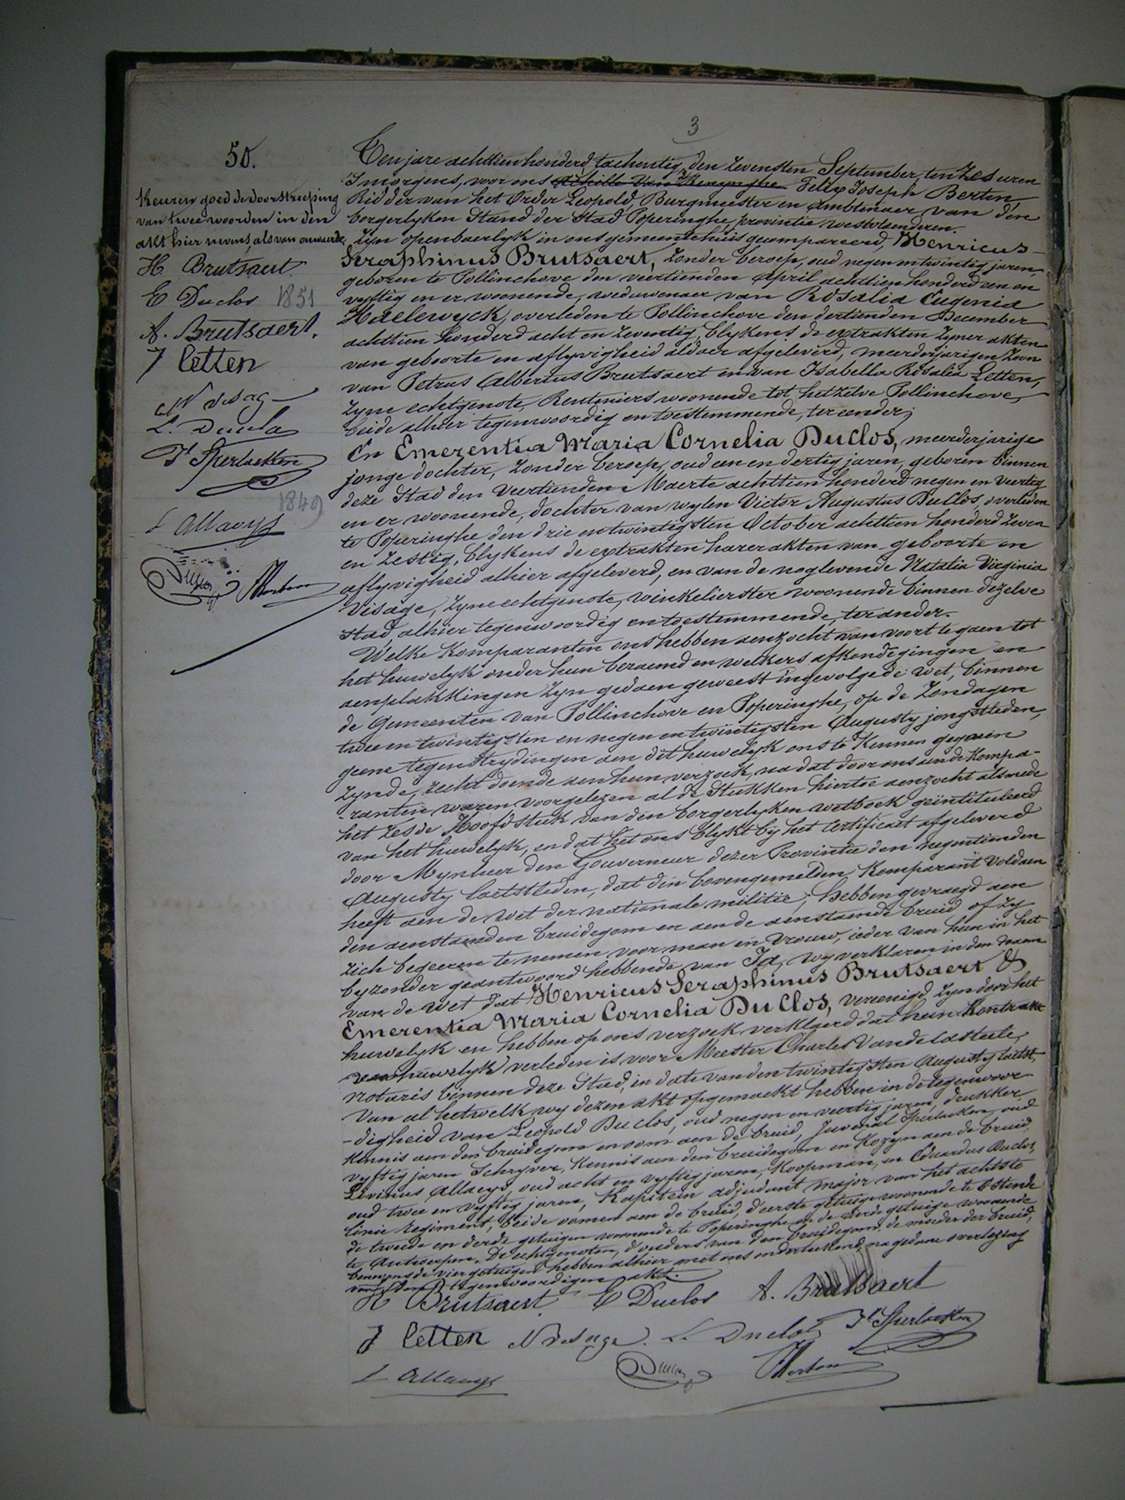 3
50.
Keuren goed de doorstreping
van twee woorden in den
akt hier nevens, als van onwaerde.
H Brutsaert
E Duclos 1851
A. Brutsaert.
J Letten
N Visage
L. Duclo
J Sperlaeken
1849
L Allaeys
Ten jare achttien honderd tachentig, den zevensten September, ten zes uren
's morgens, voor ons Felix Joseph Berten,
Ridder van het Order Leopold, Burgmeester en Ambtenaer van den
borgerlyken Stand der Stad Poperinghe, provintie Westvlaenderen.
Zyn openbaerlyk in ons gemeentehuis gecompareerd Henricus
Seraphinus Brutsaert, zonder beroep, oud negen en twintig jaren
geboren te Pollinchove den viertienden April achttien honderd een en
vyftig en er woonende, weduwenaer van Rosalia Eugenia
Haelewyck, overleden te Pollinchove den dertienden December
achttien honderd acht en zeventig, blykens de extrakten zyner akten
van geboorte en aflyvigheid aldaer afgeleverd, meerderjarigen zoon
van Petrus Albertus Brutsaert en van Isabella Rosalia Letten,
zyne echtgenote, Renteniers woonende tot hetzelve Pollinchove,
beide alhier tegenwoordig en toestemmende, ter eender;
En Emerentia Maria Cornelia Duclos, meerderjarige
jonge dochter, zonder beroep, oud een en dertig jaren, geboren binnen
deze Stad den Viertienden Maerte achttien honderd negen en veertig
en er woonende, dochter van wylen Victor Augustus Duclos, overleden
te Poperinghe den drie en twintigsten October achttien honderd zeven
en zestig, blykens de extrakten harer akten van geboorte en
aflyvigheid alhier afgeleverd, en van de nog levende Natalia Virginia
Visage, zyne echtgenote, winkelierster woonende binnen dezelve
Stad, alhier tegenwoordig en toestemmende, ter ander.
Welke Komparanten ons hebben aenzocht van voort te gaen tot
het huwelyk onder hun beraemd en welkers afkondigingen en
aenplakkingen zyn gedaen geweest ingevolge de wet, binnen
de Gemeenten van Pollinchove en Poperinghe, op de Zondagen
twee en twintigsten en negen en twintigsten Augusty jongstleden,
geene tegenstrydingen aen dit huwelyk ons te kennen gegeven
zynde, recht doende aen hun verzoek, na dat door ons aen de Kompa-
ranten waren voorgelezen al de Stukken hiertoe aenzocht alsmede
het zesde Hoofdstuk van den borgerlyken wetboek geïntituleerd
van het huwelyk, en dat het ons blykt by het Certificaet afgeleverd
door Mynheer den Gouverneur dezer Provintie den negentienden
Augusty laetstleden, dat den bovengemelden Komparant voldaen
heeft aen de wet der nationale militie; Hebben gevraegd aen
den aenstaenden bruidegom en aende aenstaende bruid of zy
zich begeeren te nemen voor man en vrouw, ieder van hun in het
byzonder geantwoord hebbende van Ja, wy verklaren in den naem
van de wet dat Henricus Seraphinus Brutsaert &
Emerentia Maria Cornelia Duclos, vereenigd zyn door het
huwelyk en hebben op ons verzoek verklaerd dat hun Kontrakt
van huwelyk verleden is voor Meester Charles Vande Lasteele,
notaris binnen deze Stad, in date van den twintigsten Augusty laetst.
Van al hetwelk wy dezen akt opgemaekt hebben in de tegenwoor-
digheid van Leopold Duclos, oud negen en veertig jaren, drukker
kennis aen den bruidegom en oom aen de bruid, Juvenal Sperlaeken, oud
vyftig jaren Schryver, kennis aen den bruidegom en Kozyn aen de bruid,
Livinus Allaeys, oud acht en vyftig jaren, Koopman, en Eduardus Duclos,
oud twee en vyftig jaren, Kapitein adjudant major van het achtste
linie regiment, beide oomen aen de bruid, d'eerste getuige woonende te Ostende
de tweede en derde getuigen woonende te Poperinghe en de vierde getuige woonende
te Antwerpen. De echtgenoten, d'ouders van den bruidegom, de moeder der bruid,
benevens de vier getuigen hebben alhier met ons onderteekend, na gedane overlezing
van den tegenwoordigen akt.
H Brutsaert E Duclos A. Brutsaert
J Letten N Visage. L. Duclo J Sperlaeken
L Allaeys Duclos